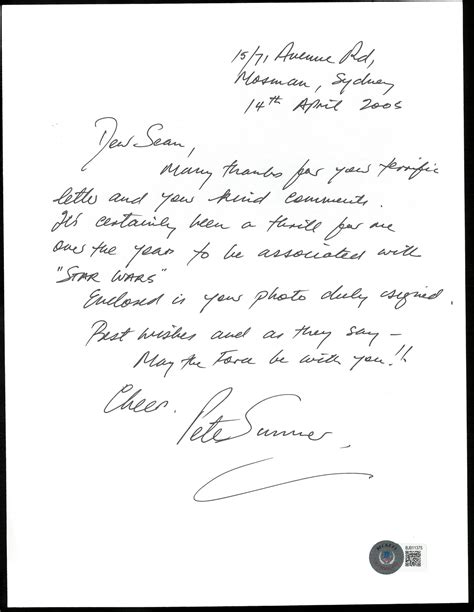 15/71 Avenue Rd,
Mosman, Sydney
14th April 2005
Dear Sean,
Many thanks for your terrific
letter and your kind comments.
It's certainly been a thrill for me
over the years to be associated with
"STAR WARS"
Enclosed is your photo duly signed.
Best wishes and as they say –
May the Force be with you!!
Cheers.
Pete Sumner
BECKETT